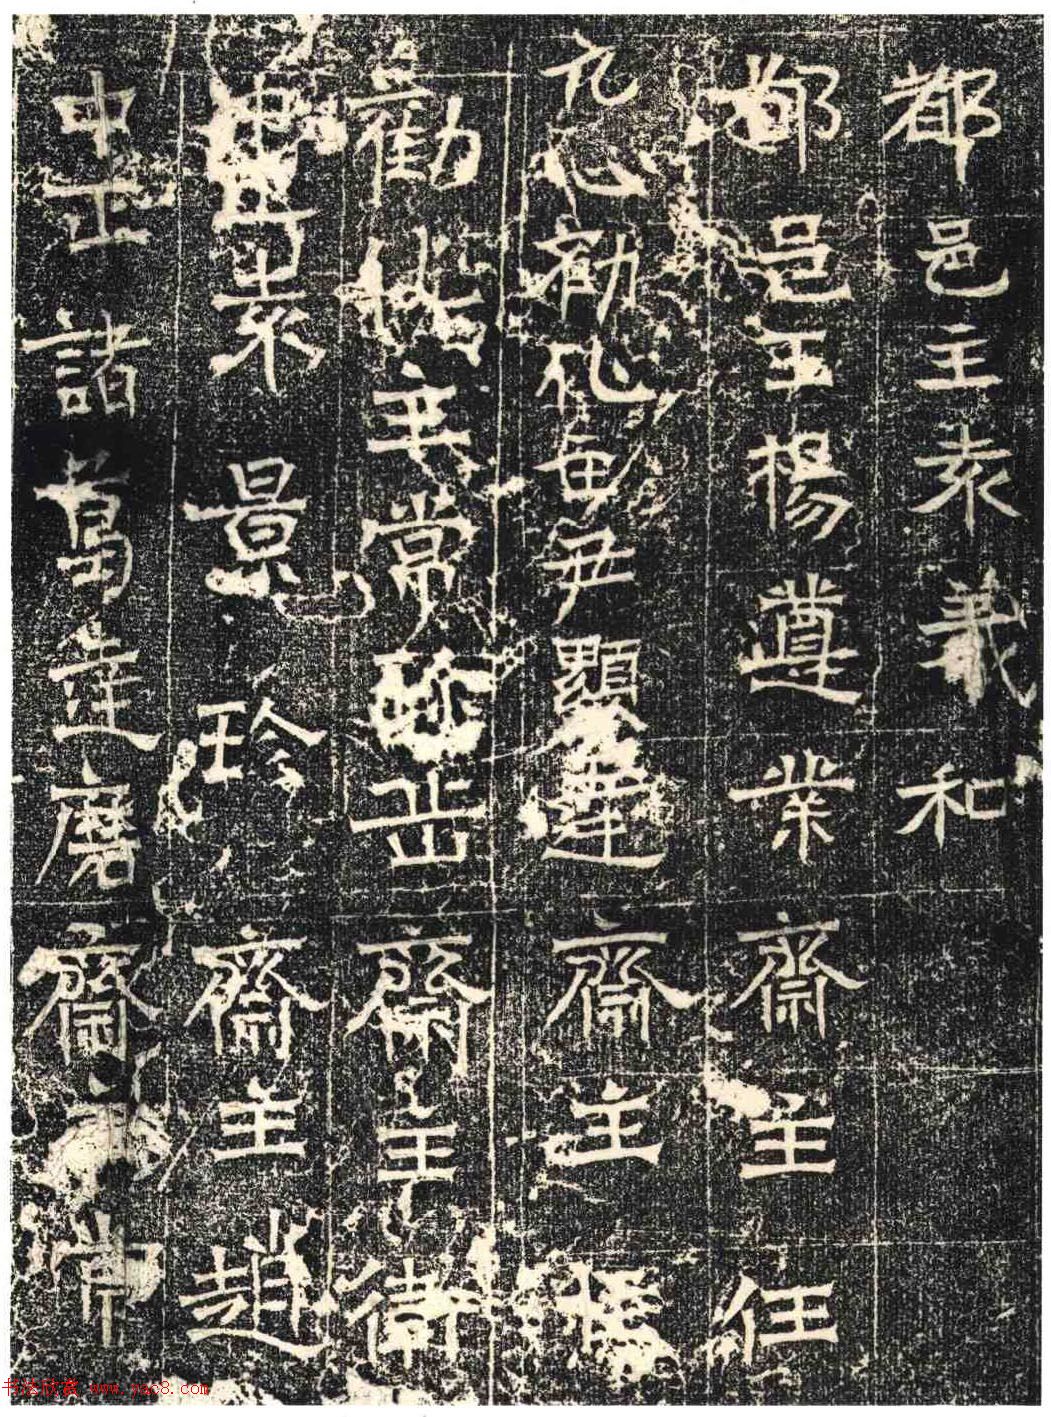 都邑主袁義和
都邑主楊遵業 齋主任
元心勸化主尹顯達 齋主
勸化主常 岳 齋主衛
中正袁景珍 齋主趙
中正諸葛達磨 齋主常
书法欣赏 www.yac8.com